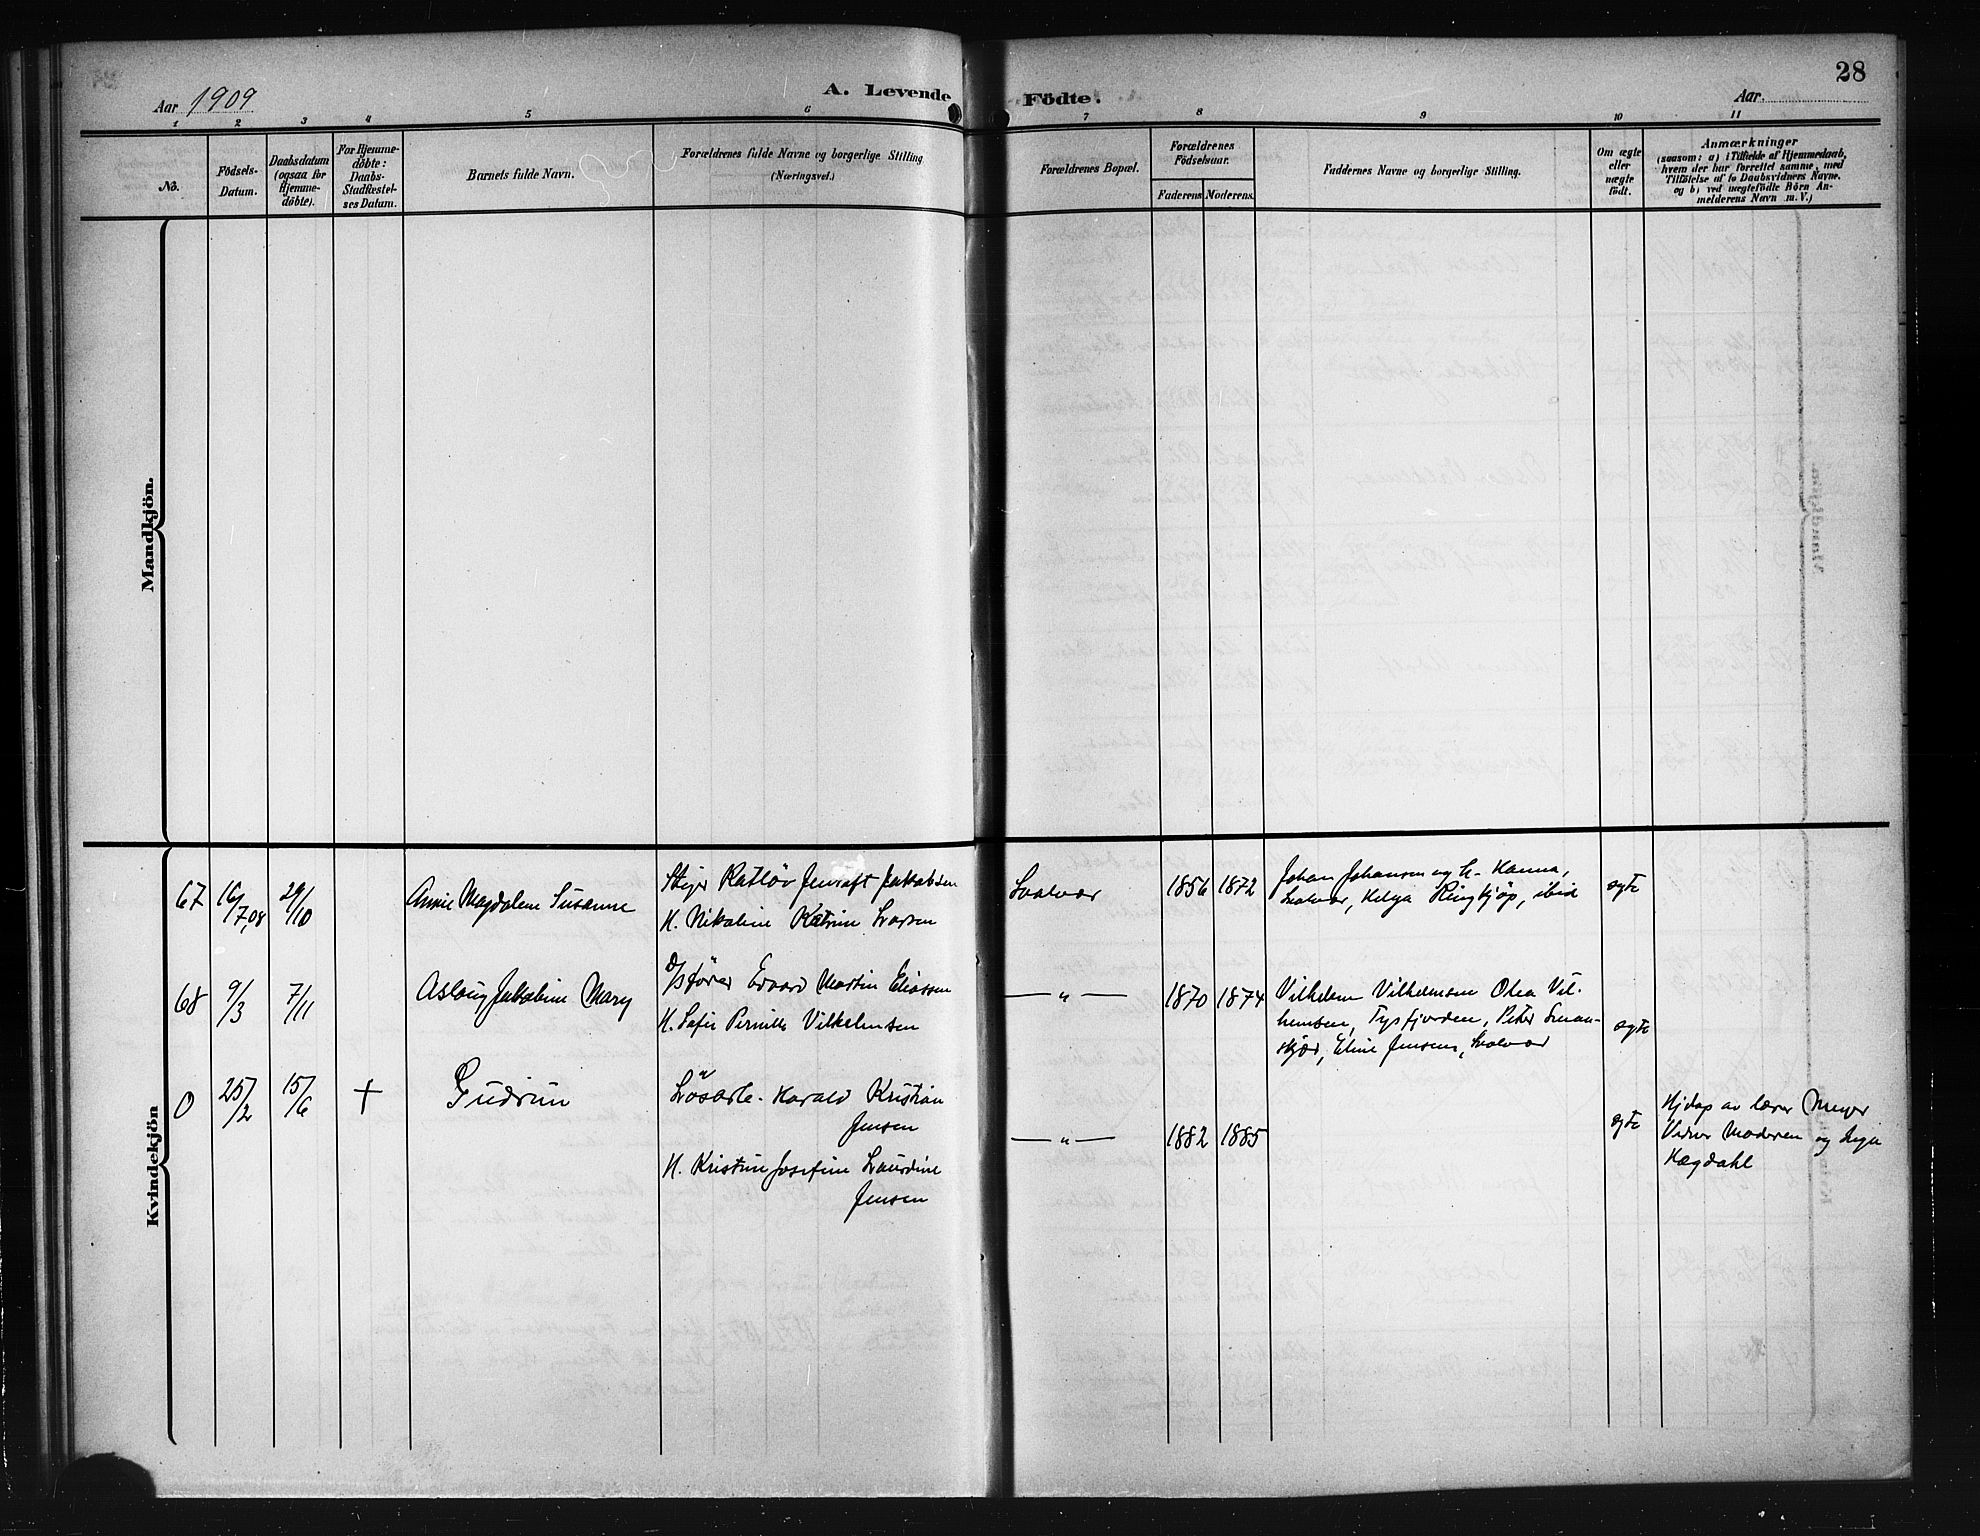 28
Aar 1909
A. Levende
Födte.
Aar
1 2 3 4 5 6 7 8 9 10 11
No.
Födsels-
Datum.
Daabsdatum
(ogsaa for
Hjemme-
döbte).
For Hjemme-
döbte:
Daabs-
Stadfæstel-
ses Datum.
Barnets fulde Navn.
Forældrenes fulde Navne og borgerlige Stilling
(Næringsvei.)
Forældrenes Bopæl.
Forældrenes
Födselsaar.
Faderens Moderens.
Faddernes Navne og borgerlige Stilling.
Om ægte
eller
uægte
födt.
Anmærkninger
(saasom: a) i Tilfælde af Hjemmedaab,
hvem der har forrettet samme, med
Tilföielse af to Daabsvidners Navne.
og b) ved uægtefödte Börn An-
melderens Navn m. V.)
Mandkjön.
Kvindekjön
67 16/7,08 29/10
Annie Magdalene Susanne
Jakobsen
H. Nikoline Katrine Larsen
Svolvær
1856 1872
Johan Johansen og H. Hanna,
Svolvær, Helga Ringkjøp, ibid
ægte
68 9/3 7/11
Aslaug Jakobine Mary
D/sfører Edvard Martin Eliassen
H. Sofie Pernille Vilhelmsen
— " —
1870 1874
Vilhelm Vilhelmsen Olea Vil-
helmsen, Tysfjorden, Peter Svaan-
skjær, Eline Jensen, Svolvær
ægte
0 25/2 15/6 +
Gudrun
Løsarb. Harald Kristian
Jensen
H. Kristine Josefine Laurdine
Jensen
— " —
1882 1885
ægte
Hjdøp av lærer Meyer
Vidner Moderen og Inga
Hægdahl